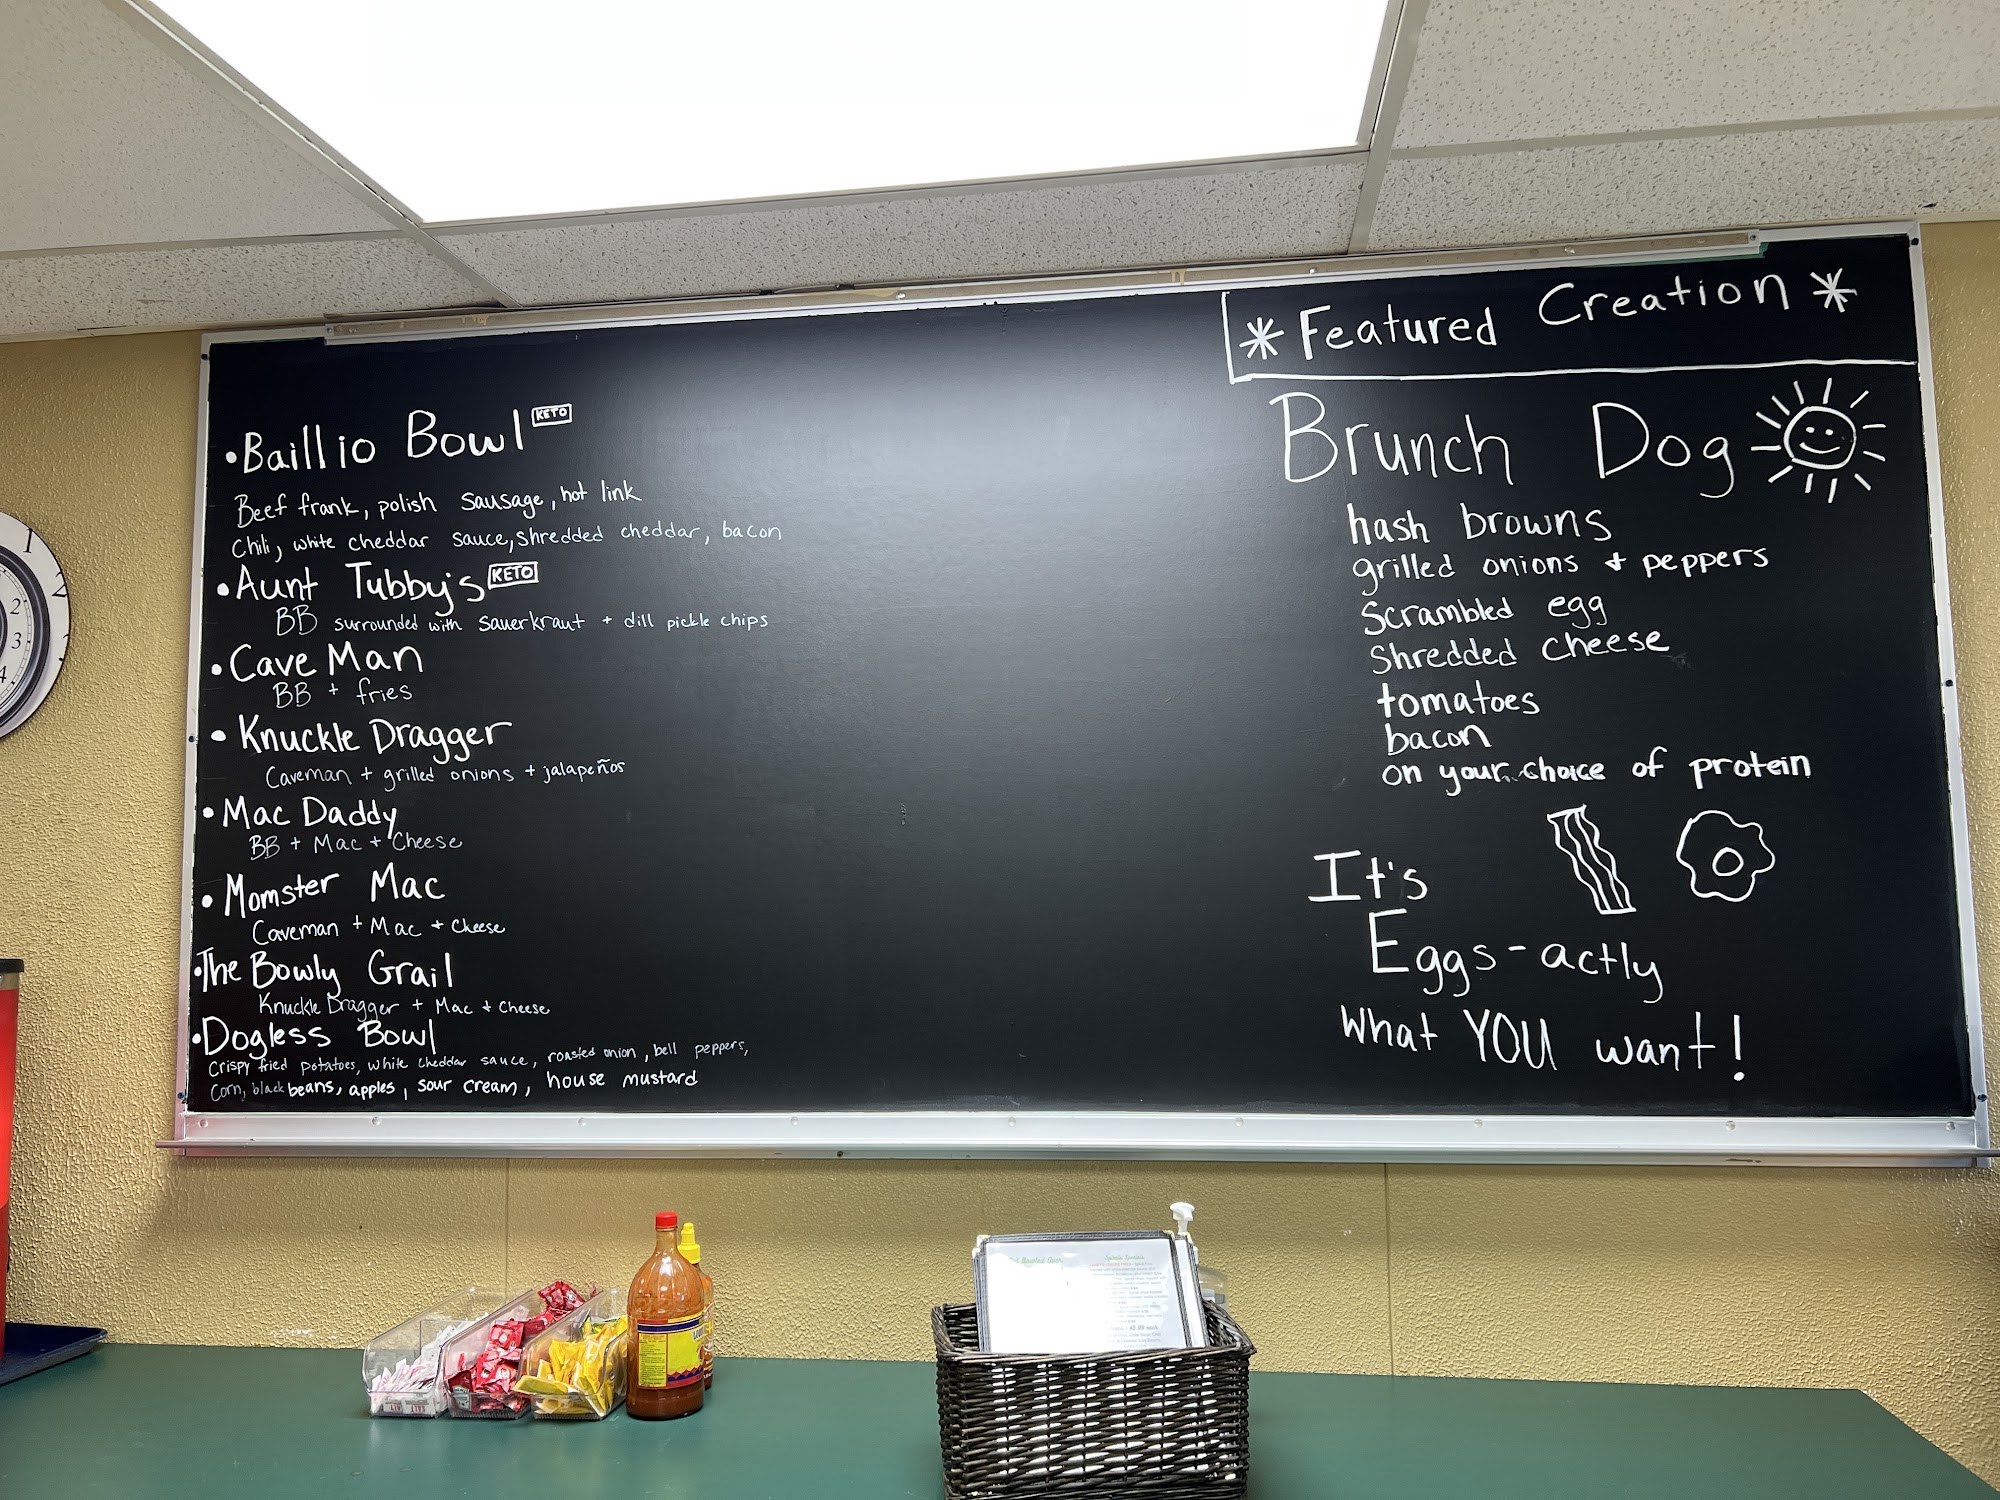 •Baillio Bowl KETO
Beef frank, polish sausage, hot link
Chili, white cheddar sauce, shredded cheddar, bacon
•Aunt Tubby's KETO
BB surrounded with sauerkraut + dill pickle chips
•Cave Man
BB + fries
•Knuckle Dragger
Caveman + grilled onions + jalapeños
•Mac Daddy
BB + Mac + Cheese
•Momster Mac
Caveman + Mac + Cheese
•The Bowly Grail
Knuckle Dragger + Mac + Cheese
•Dogless Bowl
Crispy fried potatoes, white cheddar sauce, roasted onion, bell peppers,
Corn, black beans, apples, sour cream, house mustard
*Featured Creation*
Brunch Dog
hash browns
grilled onions + peppers
scrambled egg
Shredded cheese
tomatoes
bacon
on your choice of protein
It's
Eggs-actly
What YOU want!
1
2
2
3
4
SALT